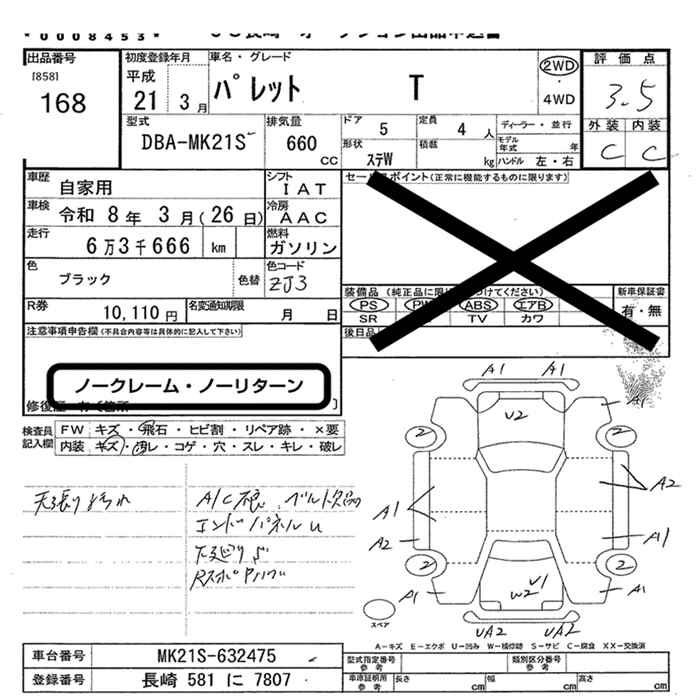 *0008453*
出品番号
[858]
168
初度登録年月
平成
21 3月
車名・グレード
パレット T
2WD
・
4WD
評価点
3.5
外装 内装
C C
型式
DBA-MK21S
排気量
660
CC
ドア
5
定員
4 人
ディーラー・並行
モデル年式 年
形状
ステW
積載
kg
ハンドル 左・右
車歴
自家用
シフト
IAT
セールスポイント(正常に機能するものに限ります)
車検
令和 8年 3月(26日)
冷房
AAC
走行
6万3千666 km
燃料
ガソリン
色
ブラック
色替
色コード
ZJ3
装備品
PS PW ABS エアB
SR TV カワ
新車保証書
有・無
R券
10,110円
名変通知期限
月 日
後日品
注意事項申告欄(不具合内容等は具体的に記入して下さい)
ノークレーム・ノーリターン
検査員
記入欄
FW キズ・飛石・ヒビ割・リペア跡・×要
内装 キズ・汚レ・コゲ・穴・スレ・キレ・破レ
天張り汚れ
エンドパネルU
下廻りS
A1 A1
U2
A1
2 2
A1
A2
A2
A1
2 2
A1
A1
U1
W2
UA2 UA2
スペア
A-キズ E-エクボ U-凹み W-補修跡 S-サビ C-腐食 XX-交換済
車台番号
MK21S-632475
登録番号
長崎 581 に 7807
型式指定番号
参考
類別区分番号
参考
車庫証明用
参考
長さ cm
幅 cm
高さ cm